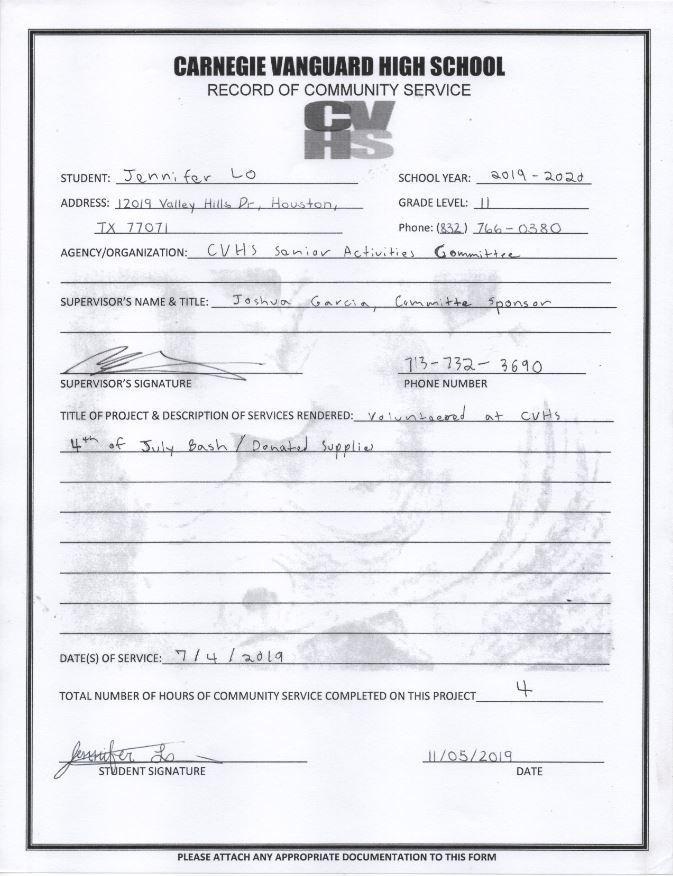 CARNEGIE VANGUARD HIGH SCHOOL
RECORD OF COMMUNITY SERVICE
CV
HS
STUDENT: Jennifer Lo SCHOOL YEAR: 2019-2020
ADDRESS: 12019 Valley Hills Dr, Houston, GRADE LEVEL: 11
TX 77071 Phone: (832) 766-0380
AGENCY/ORGANIZATION: CVHS Senior Activities Committee
SUPERVISOR'S NAME & TITLE: Joshua Garcia, Committe Sponsor
713-732-3690
SUPERVISOR'S SIGNATURE PHONE NUMBER
TITLE OF PROJECT & DESCRIPTION OF SERVICES RENDERED: Volunteered at CVHS
4th of July Bash / Donated Supplies
DATE(S) OF SERVICE: 7/4/2019
TOTAL NUMBER OF HOURS OF COMMUNITY SERVICE COMPLETED ON THIS PROJECT 4
Jennifer Lo 11/05/2019
STUDENT SIGNATURE DATE
PLEASE ATTACH ANY APPROPRIATE DOCUMENTATION TO THIS FORM